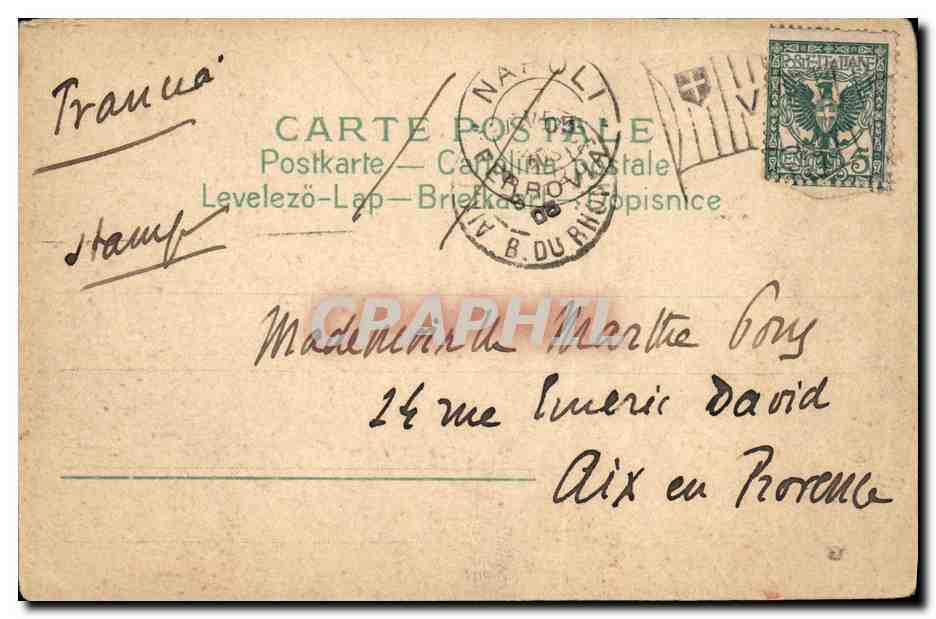 Francia
stampe
CARTE POSTALE
Postkarte — Cartolina postale
Levelezö-Lap — Briefkaart — Dopisnice
NAPOLI
FERROVIA
B. DU RHONE
POSTE ITALIANE
5
CRAPHIL
Mademoiselle Marthe Pons
24 rue Emeric David
Aix en Provence